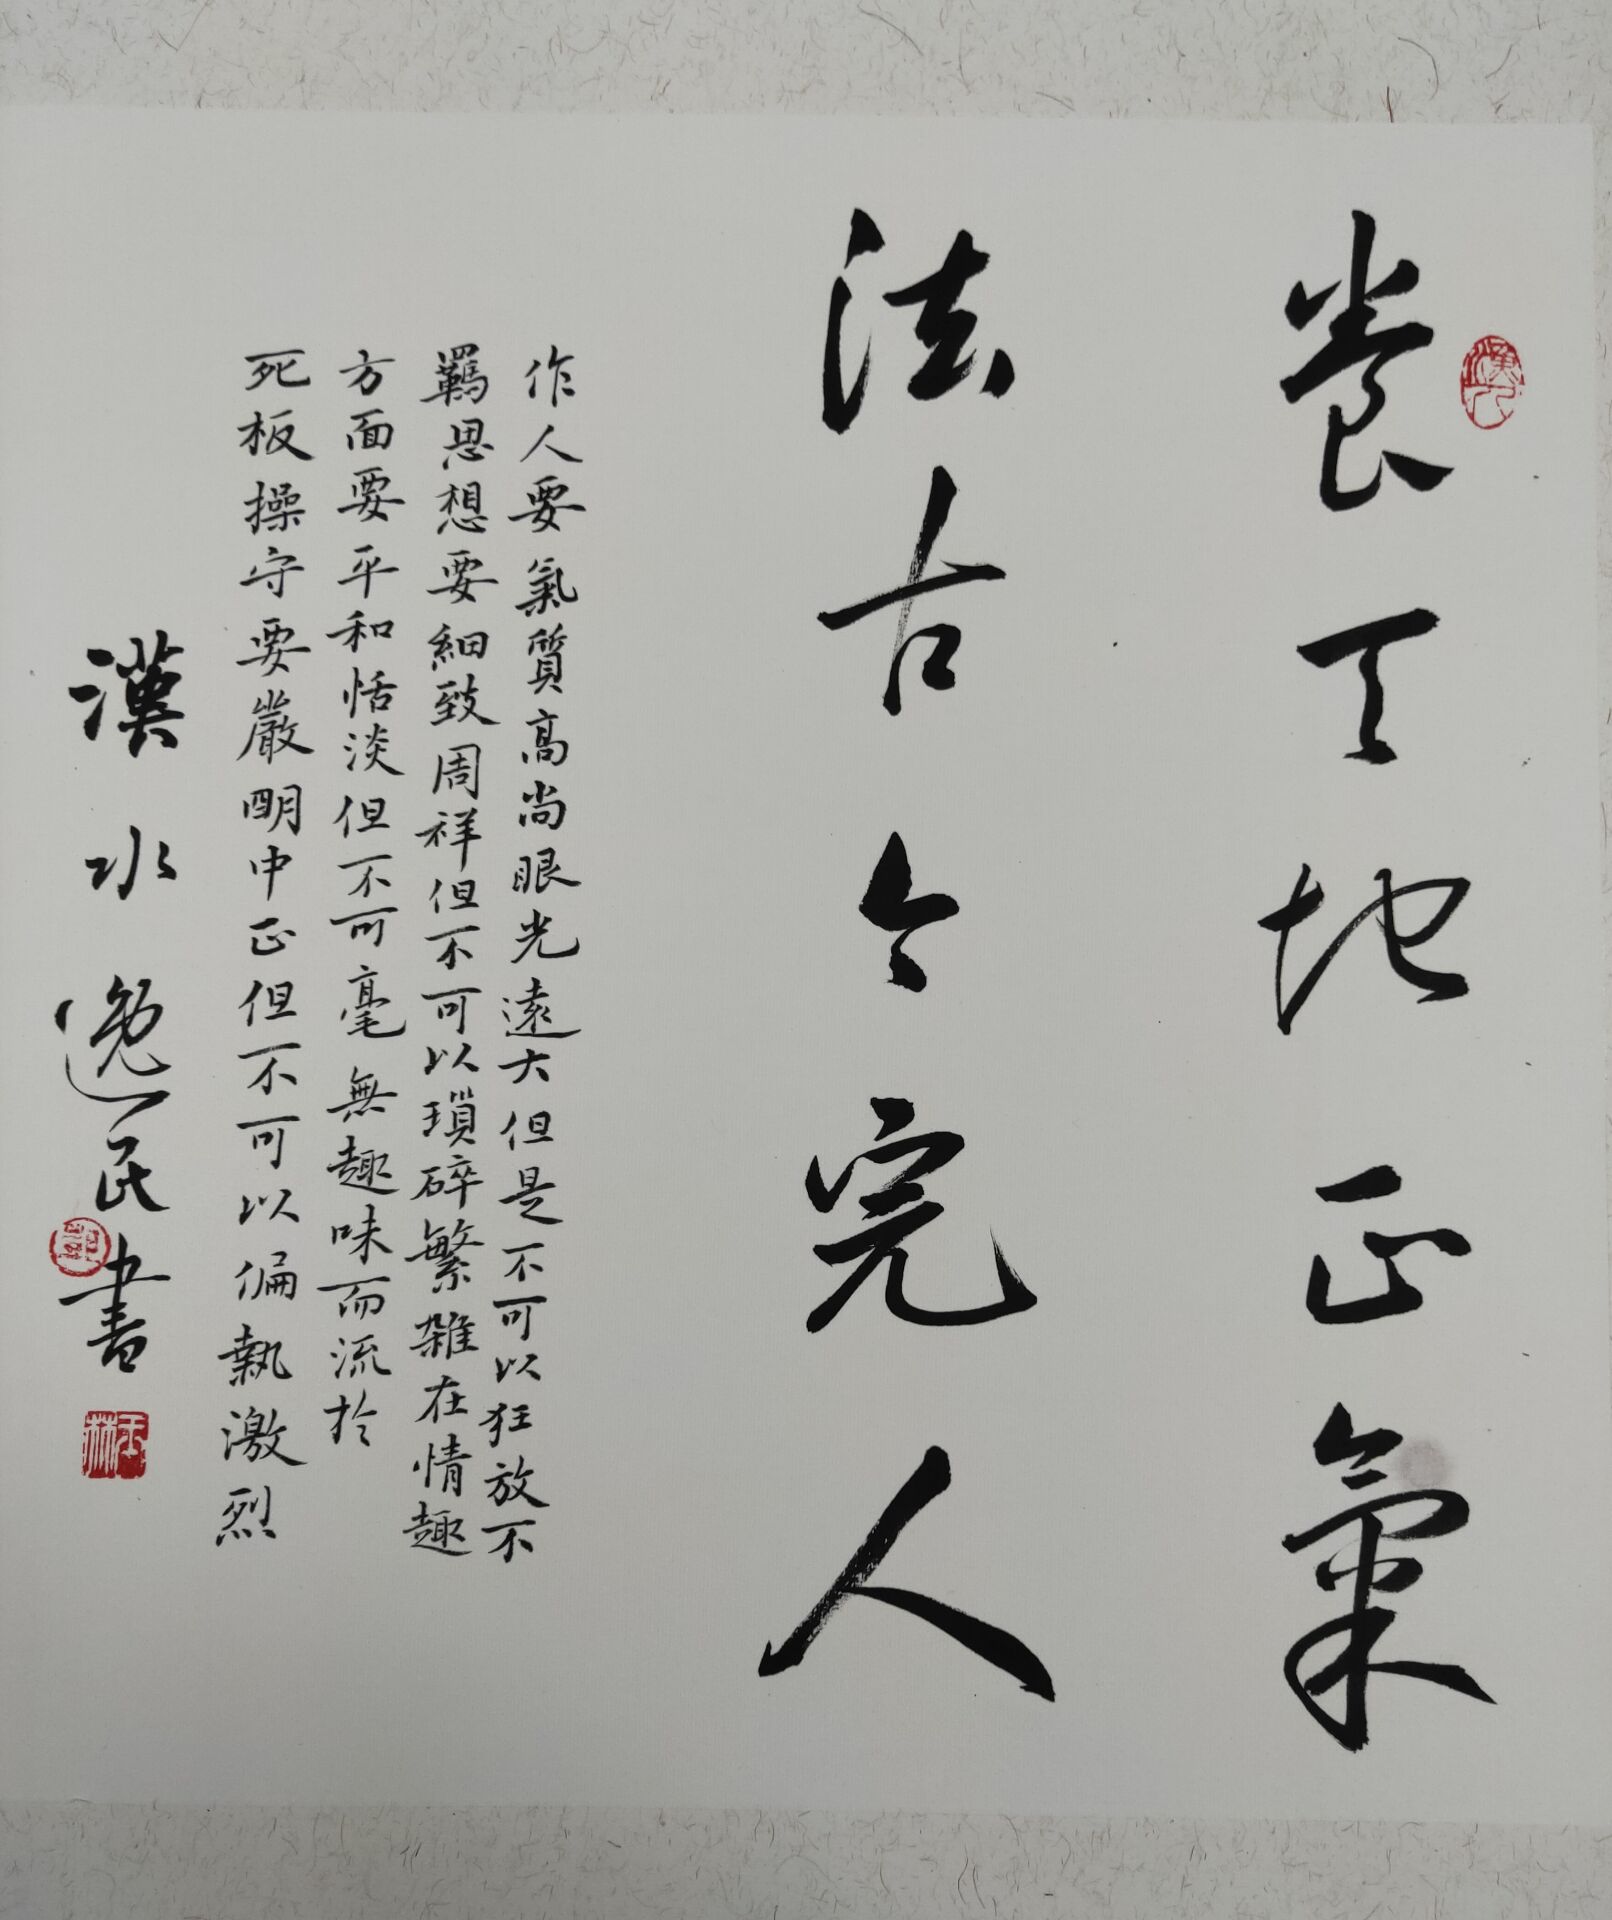 養天地正氣
法古今完人
作人要氣質高尚眼光遠大但是不可以狂放不
羈思想要細致周祥但不可以瑣碎繁雜在情趣
方面要平和恬淡但不可毫無趣味而流於
死板操守要嚴明中正但不可以偏執激烈
漢水逸民書